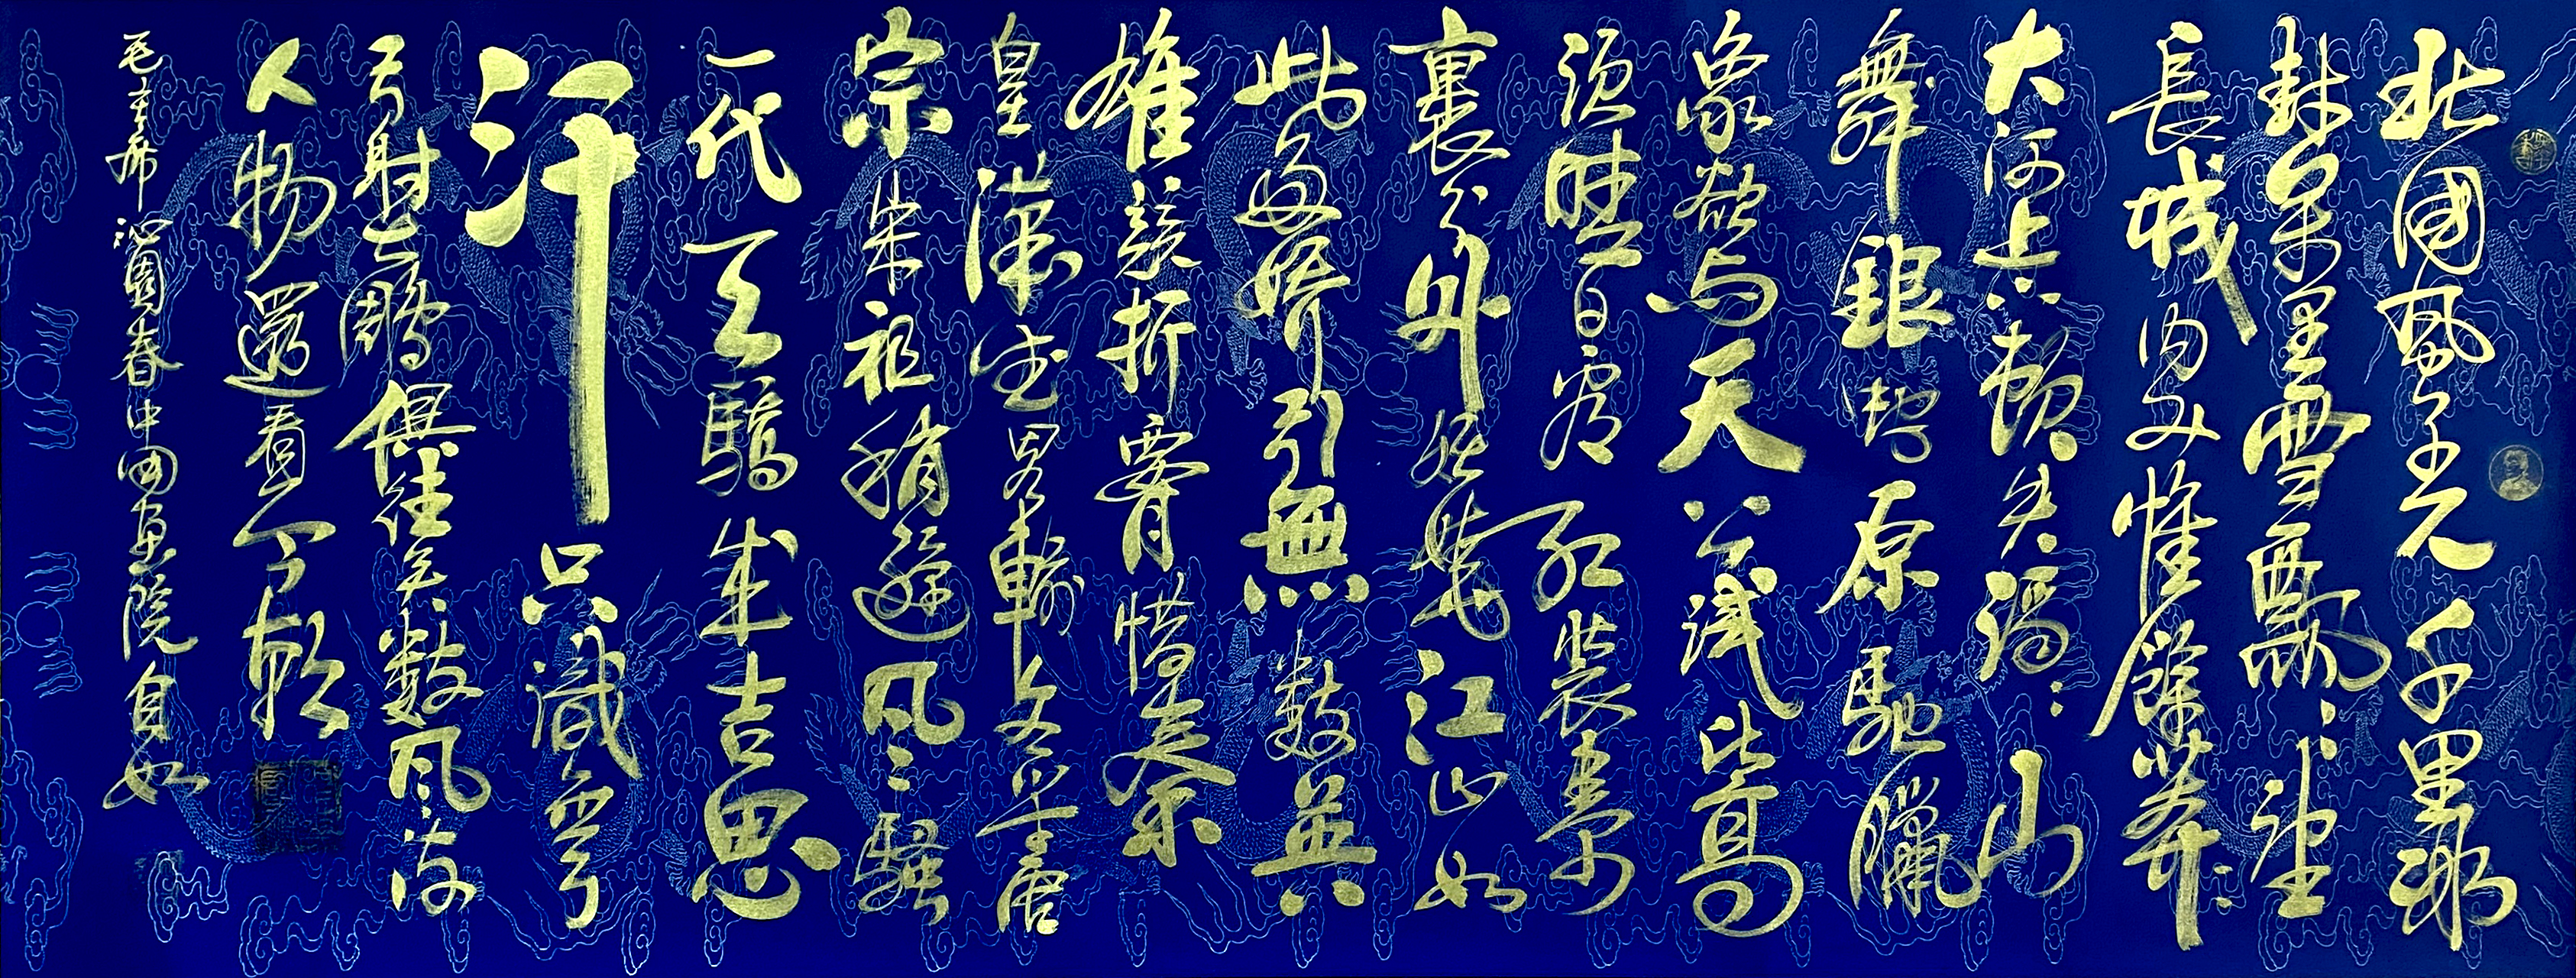 北國風光千里冰
封萬里雪飄:望
長城内外惟餘莽:
大河上下頓失滔:山
舞銀蛇原馳臘
象欲与天公試比高
須晴日看紅裝素
裹分外妖嬈江山如
此多嬌引無數英
雄競折腰惜秦
皇漢武略輸文采唐
宗宋祖稍遜風:騷
一代天驕成吉思
汗只識彎
弓射大鵰俱往矣數風流
人物還看今朝
毛主席沁園春中國画院自如